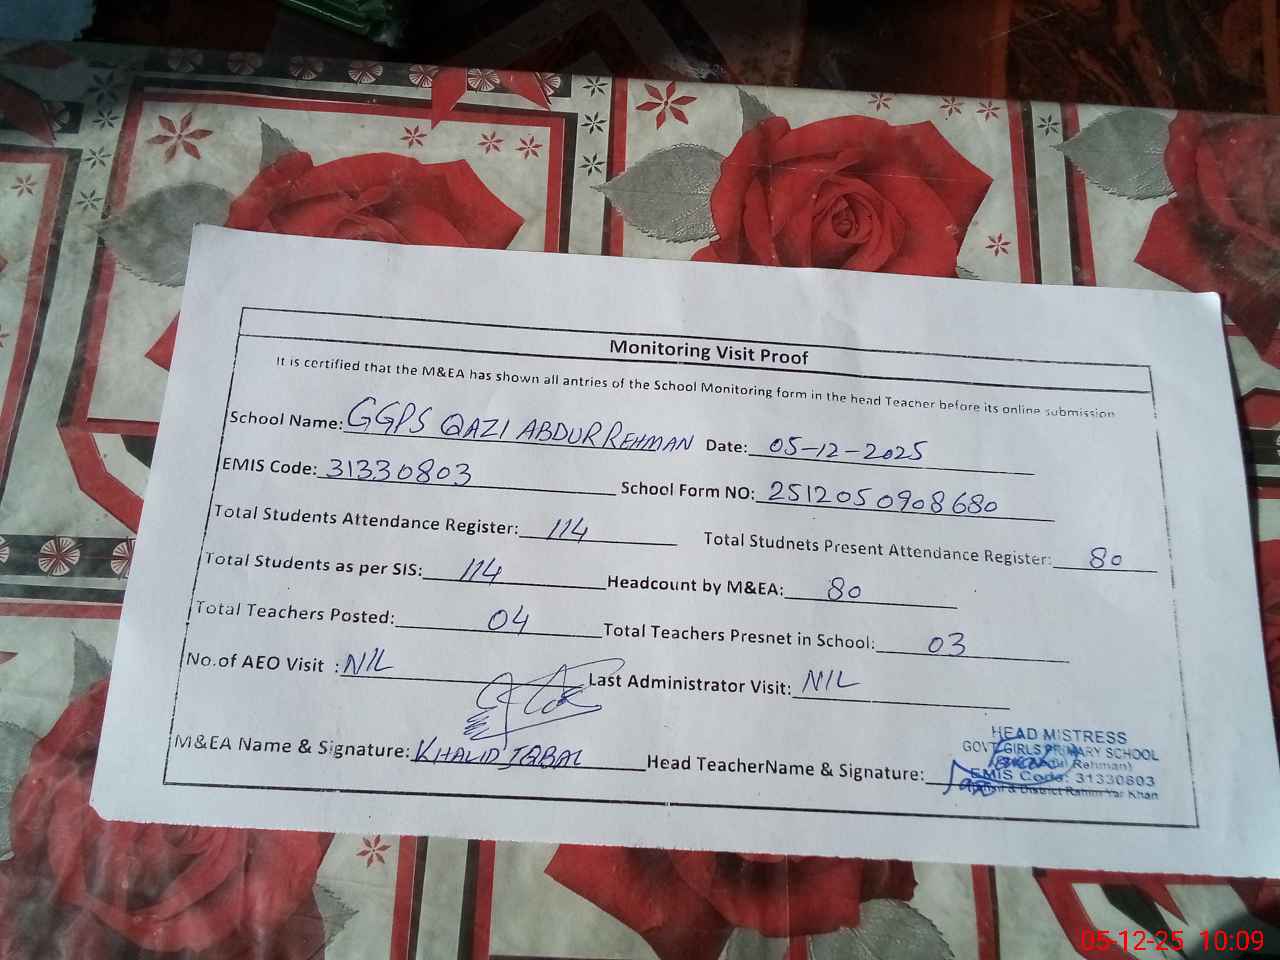 Monitoring Visit Proof
It is certified that the M&EA has shown all antries of the School Monitoring form in the head Teacher before its online submission
School Name: GGPS QAZI ABDUR REHMAN Date: 05-12-2025
EMIS Code: 31330803 School Form NO: 2512050908680
Total Students Attendance Register: 114 Total Studnets Present Attendance Register: 80
Total Students as per SIS: 114 Headcount by M&EA: 80
Total Teachers Posted: 04 Total Teachers Presnet in School: 03
No.of AEO Visit : NIL Last Administrator Visit: NIL
M&EA Name & Signature: KHALID IQBAL Head TeacherName & Signature:
HEAD MISTRESS
GOVT GIRLS PRIMARY SCHOOL
Rehman)
EMIS Code: 31330803
& District Rahim Yar Khan
05-12-25 10:09